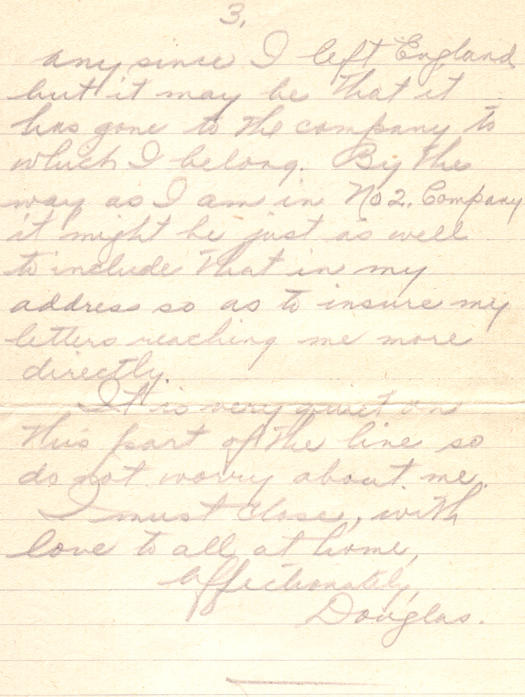 3.
any since I left England
but it may be that it
has gone to the company to
which I belong. By the
way as I am in No 2. Company
it might be just as well
to include that in my
address so as to insure my
letters reaching me more
directly.
It is very quiet on
this part of the line so
do not worry about me.
I must close, with
love to all at home,
Affectionately,
Douglas.